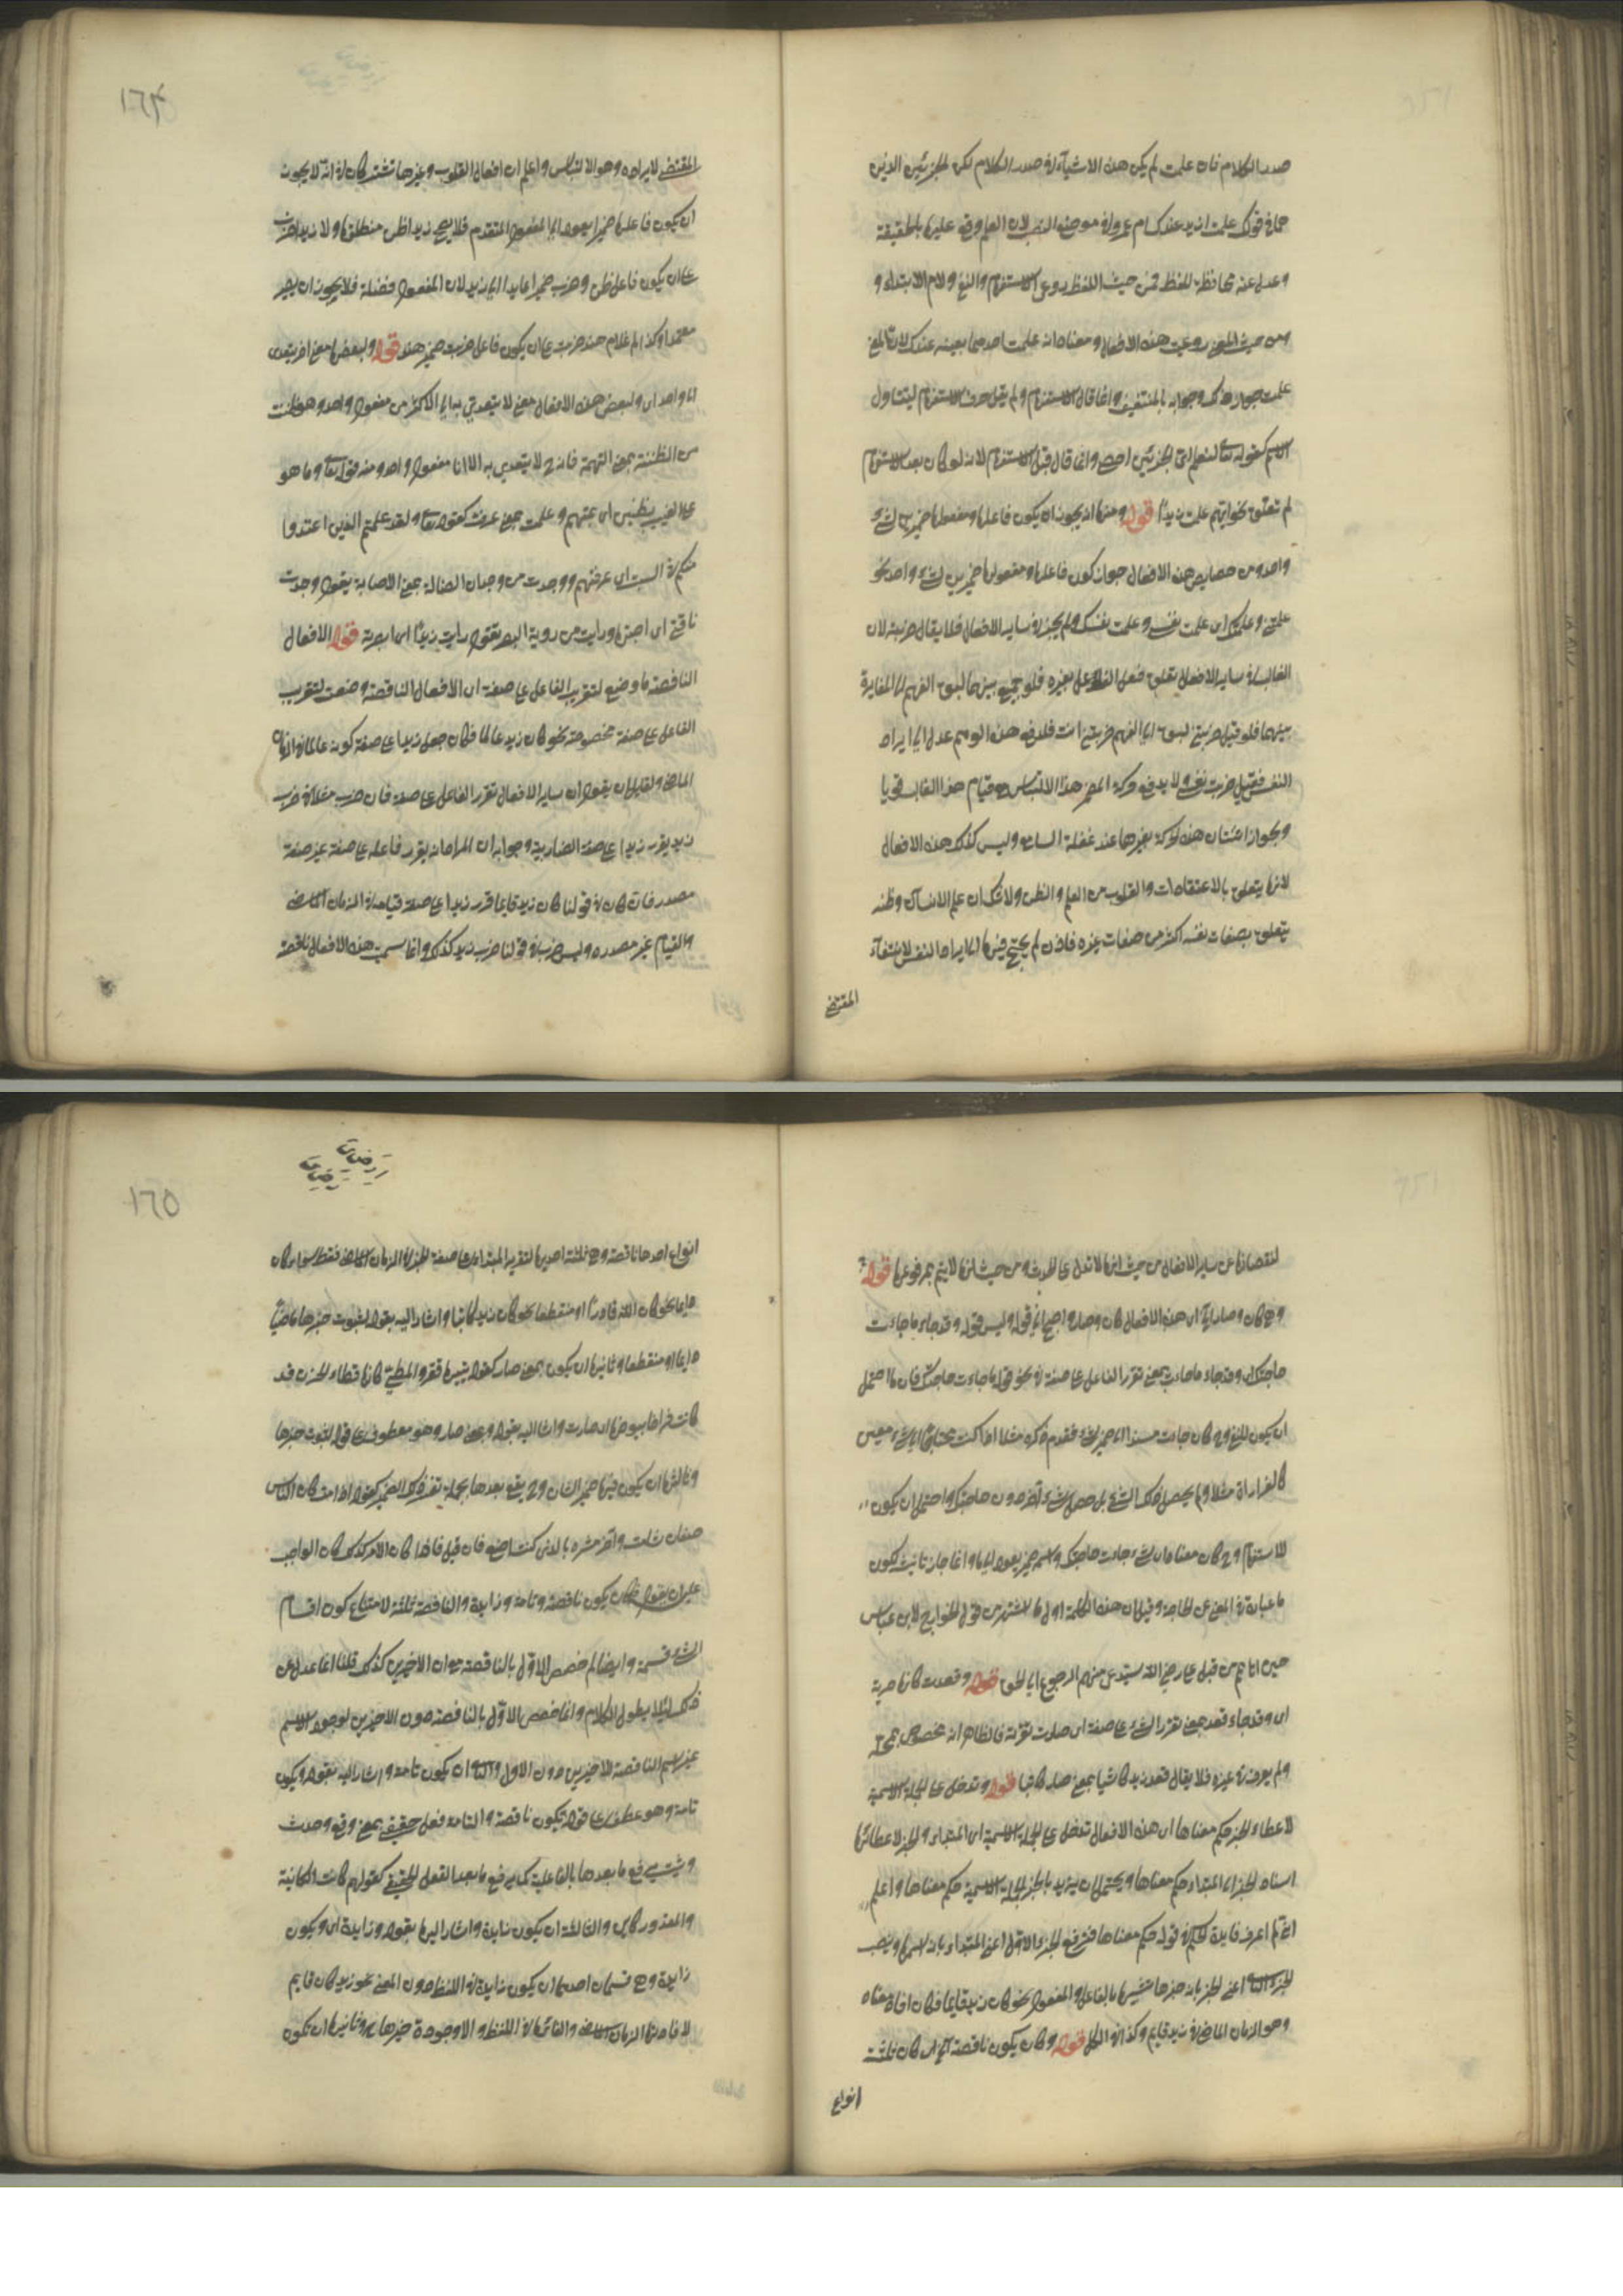 صدر الكلام فان علمت لم يكن هذه الاشياء في صدر الكلام لكن الجزئين الذين
هما في قولك علمت ازيد عندك ام عمرو في موضع النصب لان العلم وقع عليهما بالحقيقة
وعدل عنه محافظة للفظ فمن حيث اللفظ روعي الاستفهام والنفي ولام الابتداء و
من حيث المعنى روعيت هذه الافعال ومعناه انه علمت احدهما بعينه عندك لان المعنى
علمت جواب ذلك وجوابه بالتعيين وانما قال الاستفهام ولم يقل حرف الاستفهام ليتناول
الاسم كقوله تعالى لنعلم اي الحزبين احصى وانما قال قبل الاستفهام لانه لو كان بعد الاستفهام
لم تعلق نحو ايهم علمت زيدا قوله ومنها انه يجوز ان يكون فاعلها ومفعولها ضميرين لشيء
واحد ومن خصايص هذه الافعال جواز كون فاعلها ومفعولها ضميرين لشيء واحد نحو
علمتني وعلمتك اي علمت نفسي وعلمت نفسك ولم يجز في ساير الافعال فلا يقال ضربتني لان
الغالب في ساير الافعال تعلق فعل الفاعل بغيره فلو جمع بينهما لسبق الفهم الى المغايرة
بينهما فلو قيل ضربتني لسبق الى الفهم ضربتني انت فلدفع هذا الوهم عدل الى ايراد
النفس فقيل ضربت نفسي ولا يدفع حركة الضمير هذا الالتباس
ويجوز هذه الحركة بغيرها عند غفلة السامع وليس كذلك هذه الافعال
لانها يتعلق بالاعتقادات والقلوب من العلم والظن ولا شك ان علم الانسان وظنه
يتعلق بصفات نفسه اكثر من صفات غيره فاذن لم يحتج فيها الى ايراد النفس لانتفاء
المقتضي
١٦٤
المقتضي لايراده وهو الالتباس واعلم ان افعال القلوب وغيرها تشتركان في انه لا يجوز
ان يكون فاعلها ضميرا يعود الى المفعول المتقدم فلا يصح زيدا ظن منطلقا ولا زيدا ضرب
على ان يكون فاعل ظن وضرب ضميرا عايدا الى زيد لان المفعول فضلة فلا يجوز ان يصير
معتمدا وكذا لم غلام هند ضربت على ان يكون فاعل ضربت ضمير هند قوله ولبعضها معنى اخر يتعدى
الى واحد اي ولبعض هذه الافعال معنى لا يتعدى به الى اكثر من مفعول واحد وهو ظننت
من الظنة بمعنى التهمة فانه ح لا يتعدى به الا الى مفعول واحد ومنه قوله تعالى وما هو
على الغيب بظنين اي بمتهم وعلمت بمعنى عرفت كقوله تعالى ولقد علمتم الذين اعتدوا
منكم في السبت اي عرفتهم ووجدت من وجدان الضالة بمعنى الاصابة يقول وجدت
ناقتي اي اصبتها ورايت من روية البصر تقول رايت زيدا اي ابصرته قوله الافعال
الناقصة ما وضع لتقرير الفاعل على صفة اي الافعال الناقصة وضعت لتقرير
الفاعل على صفة مخصوصة نحو كان زيد عالما فكان جعل زيدا على صفة كونه عالما في الزمان
الماضي ولقايل ان يقول ان ساير الافعال تقرر الفاعل على صفة فان ضرب مثلا في ضرب
زيد يقرر زيدا على صفة الضاربية وجوابه ان المراد انه يقرر فاعله على صفة غير صفة
مصدره فان كان في قولنا كان زيد قايما قرر زيدا على صفة قيامه في الزمان الماضي
والقيام غير مصدره وليس ضرب في قولنا ضرب زيد كذلك وانما سميت هذه الافعال ناقصة
لنقصانها عن ساير الافعال من حيث انها لا تدل على الحدث ومن حيث انها لا يتم بمرفوعها قوله
وهي كان وصار الخ اي هذه الافعال كان وصار واصبح الى قوله وليس قوله وقد جاء ما جاءت
حاجتك اي وقد جاء ما جاءت بمعنى تقرر الفاعل على صفة في نحو قولهم ما جاءت حاجتك فان ما احتمل
ان يكون للنفي وح كان جاءت مسندا الى ضمير لشيء تقدم ذكره مثلا اذا كنت محتاجا الى شيء معين
كالغرارة مثلا ولم يحصل ذلك الشيء بل حصل شيء اخر دون حاجتك واحتمل ان يكون
للاستفهام وح كان معناه اي شيء جاءت حاجتك واسمه ضمير يعود الى ما وانما جاز تانيثه لكون
ما عبارة في المعنى عن الحاجة وقيل ان هذه الكلمة اول ما اشتهر من قول الخوارج لابن عباس
حين اتاهم من قبل علي رضي الله يستدعي منهم الرجوع الى الحق قوله وقعدت كانها حربة
اي وقد جاء قعد بمعنى تقرر الشيء على صفة اي صارت فالظاهر انه مخصوص بمحله
ولم يعرف في غيره فلا يقال قعد زيد كاتبا بمعنى صار كاتبا قوله وتدخل على الجملة الاسمية
لاعطاء الخبر حكم معناها اي هذه الافعال تدخل على الجملة الاسمية اي المبتداء والخبر لاعطائها
اسناد الخبر الى المبتداء حكم معناها ويحتمل ان يريد بالخبر الجملة الاسمية حكم معناها واعلم
اني لم اعرف فايدة الحكم في قوله حكم معناها فترفع الجزء الاول اعني المبتداء بانه اسمها وينصب
الجزء الثاني اعني الخبر بانه خبرها تشبيها بالفاعل والمفعول نحو كان زيد قايما فكان افاد معناه
وهو الزمان الماضي في زيد قايم وكذا في الكل قوله وكان يكون ناقصة الخ اي كان ثلثة
انواع
١٦٥
انواع احدها ناقصة وهي ثلثة احديها لتقرير المبتداء على صفة الخبر في الزمان الماضي فقط سواء كان
دايما نحو كان الله قادرا او منقطعا نحو كان زيد كاتبا واشار اليه بقوله لثبوت خبرها ماضيا
دايما او منقطعا وثانيها ان يكون بمعنى صار كقوله بتيهاء قفر والمطي كانها قطا الحزن قد
كانت فراخا بيوضها اي صارت واشار اليه بقوله وبمعنى صار وهو معطوف على قوله لثبوت خبرها
وثالثها ان يكون فيها ضمير الشان وح يقع بعدها جملة تفسر ذلك الضمير كقوله اذا مت كان الناس
صنفان شامت واخر مثن بالذي كنت اصنع فان قيل فاذا كان الامر كذلك كان الواجب
عليه ان يقول كان يكون ناقصة وتامة وزايدة والناقصة ثلثة لامتناع كون اقسام
الشيء قسيمه وايضا لم خصص الاول بالناقصة دون الاخيرين كذلك قلنا انما عدل عن
ذلك لئلا يطول الكلام وانما خصص الاول بالناقصة دون الاخيرين لوجود الاسم
غير اسم الناقصة للاخيرين دون الاول والثاني ان يكون تامة واشار اليه بقوله ويكون
تامة وهو عطف على قوله يكون ناقصة والتامة فعل حقيقي بمعنى وقع وحدث
وثبت يرفع ما بعدها بالفاعلية كما يرفع ما بعد الفعل الحقيقي كقولهم كانت الكائنة
والمقدور كاين والثالثة ان يكون زايدة واشار اليها بقوله وزايدة اي ويكون
زايدة وهي قسمان احدهما ان يكون زايدة في اللفظ دون المعنى نحو زيد كان قايم
لافادتها الزمان الماضي والغائها في اللفظ والا وجود خبرها وثانيها ان يكون